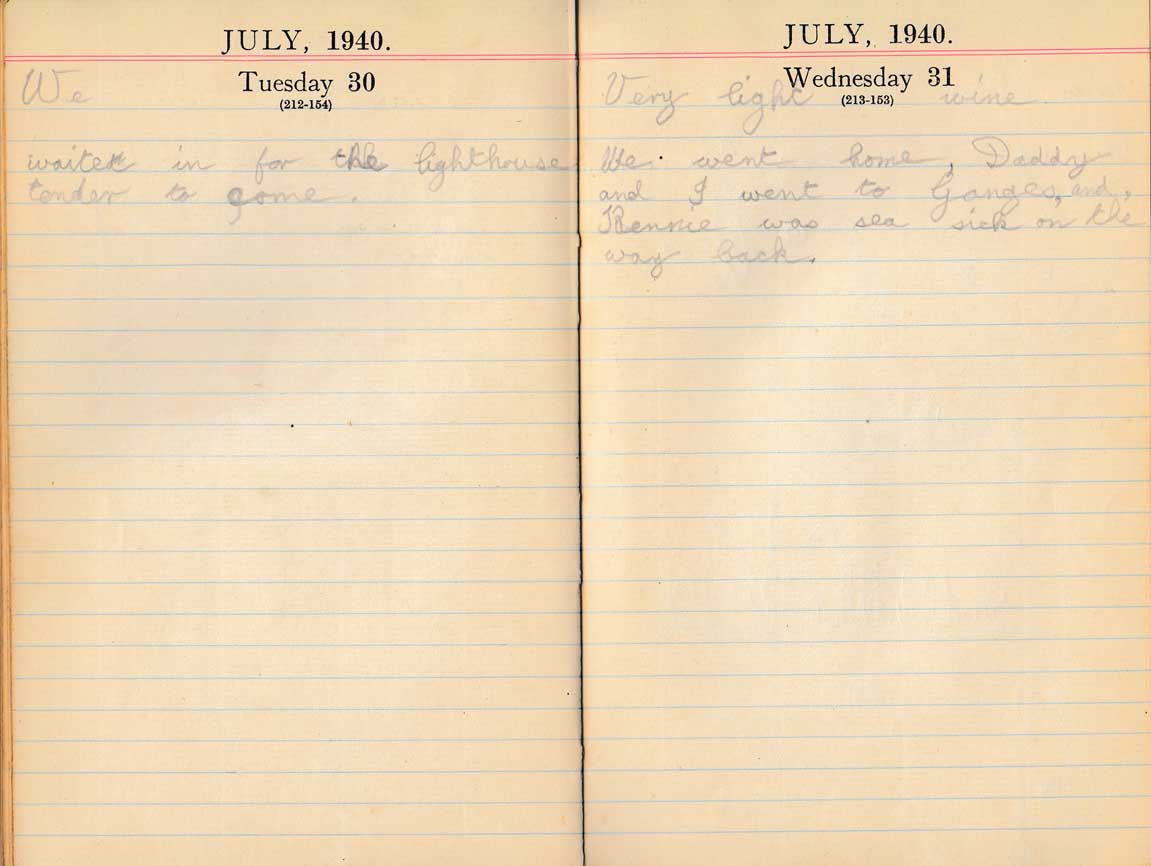 JULY, 1940.
Tuesday 30
(212-154)
We
waited in for the lighthouse
tender to come.
JULY, 1940.
Wednesday 31
(213-153)
Very light wine.
We went home, Daddy
and I went to Ganges, and,
Rennie was sea sick on the
way back.